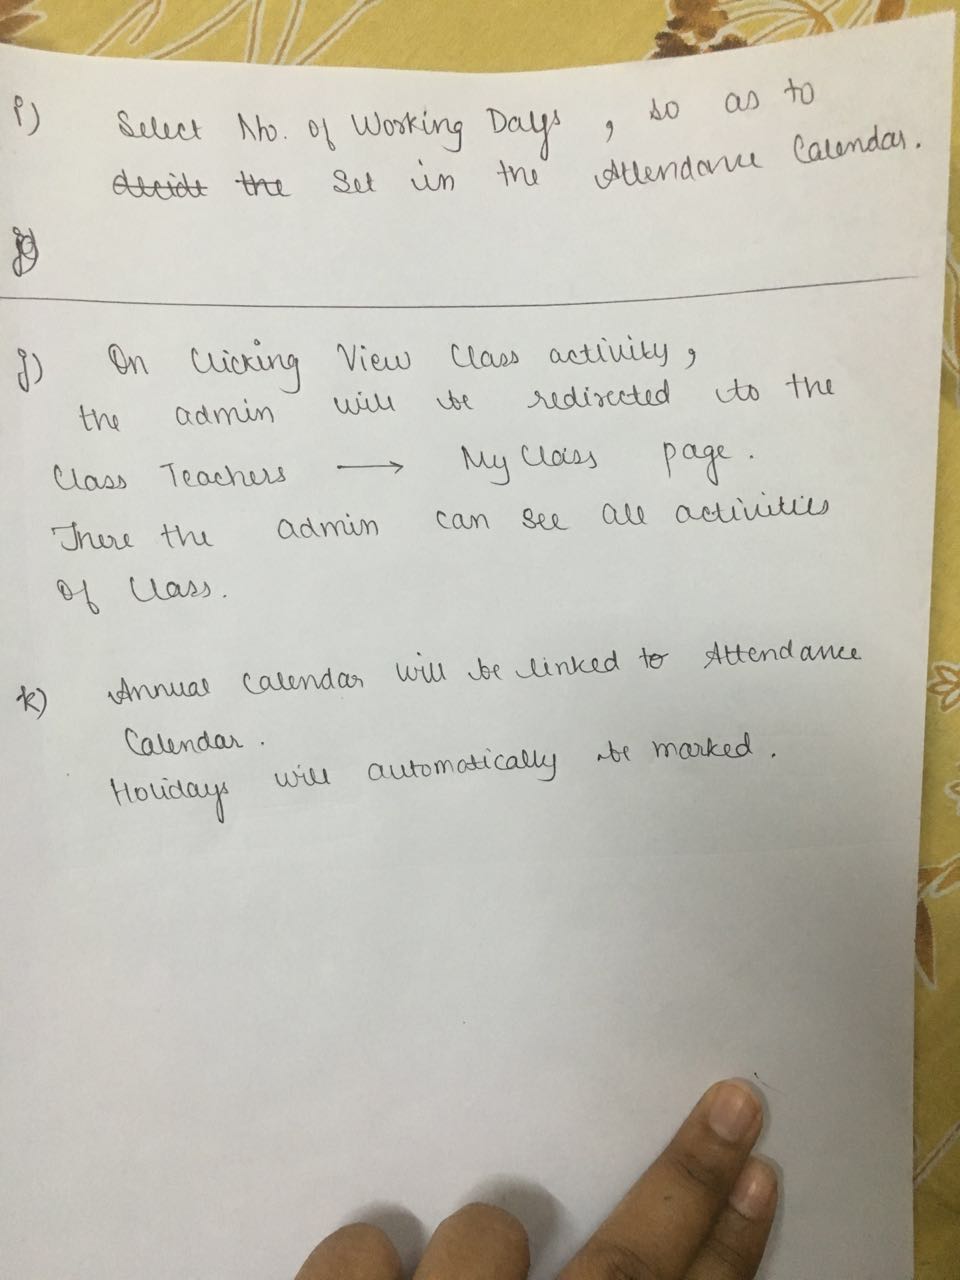 i) Select No. of Working Days, so as to
decide the Set in the Attendance Calendar.
j)
j) On Clicking View Class activity,
the admin will be redirected to the
Class Teachers → My Class page.
There the admin can see all activities
of Class.
k) Annual Calendar will be linked to Attendance
Calendar.
Holidays will automatically be marked.